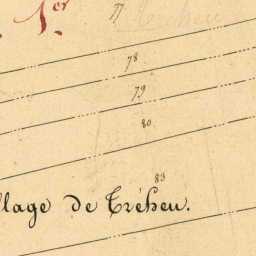 1.er
77
78
79
80
83
llage de Tréheu.